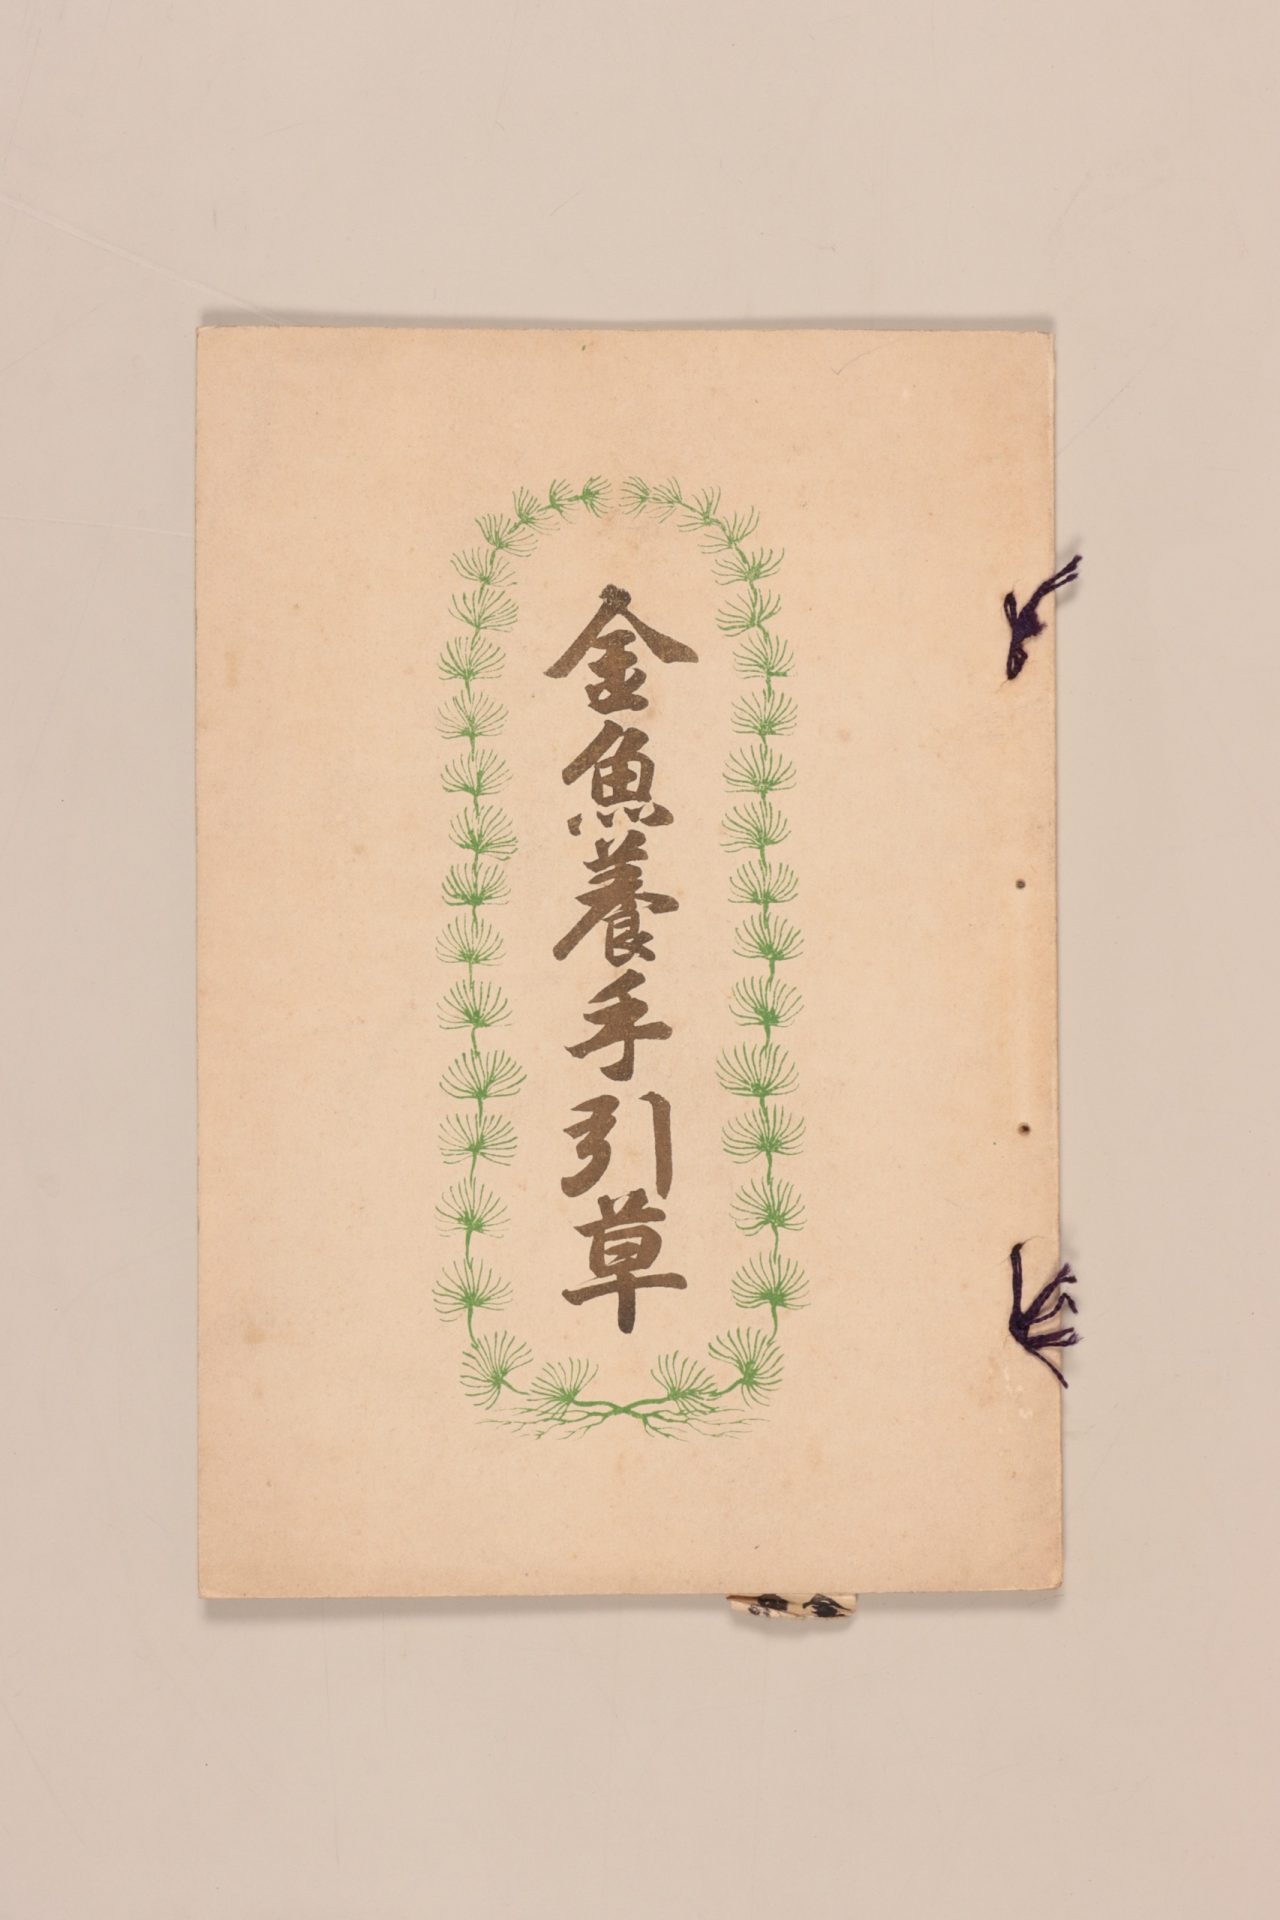 金魚養手引草